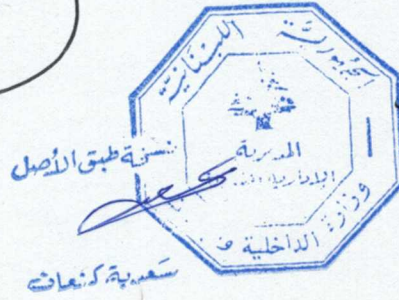 الجمهورية اللبنانية
المديرية
الإدارية
وزارة الداخلية
نسخة طبق الأصل
سعدية كنعان